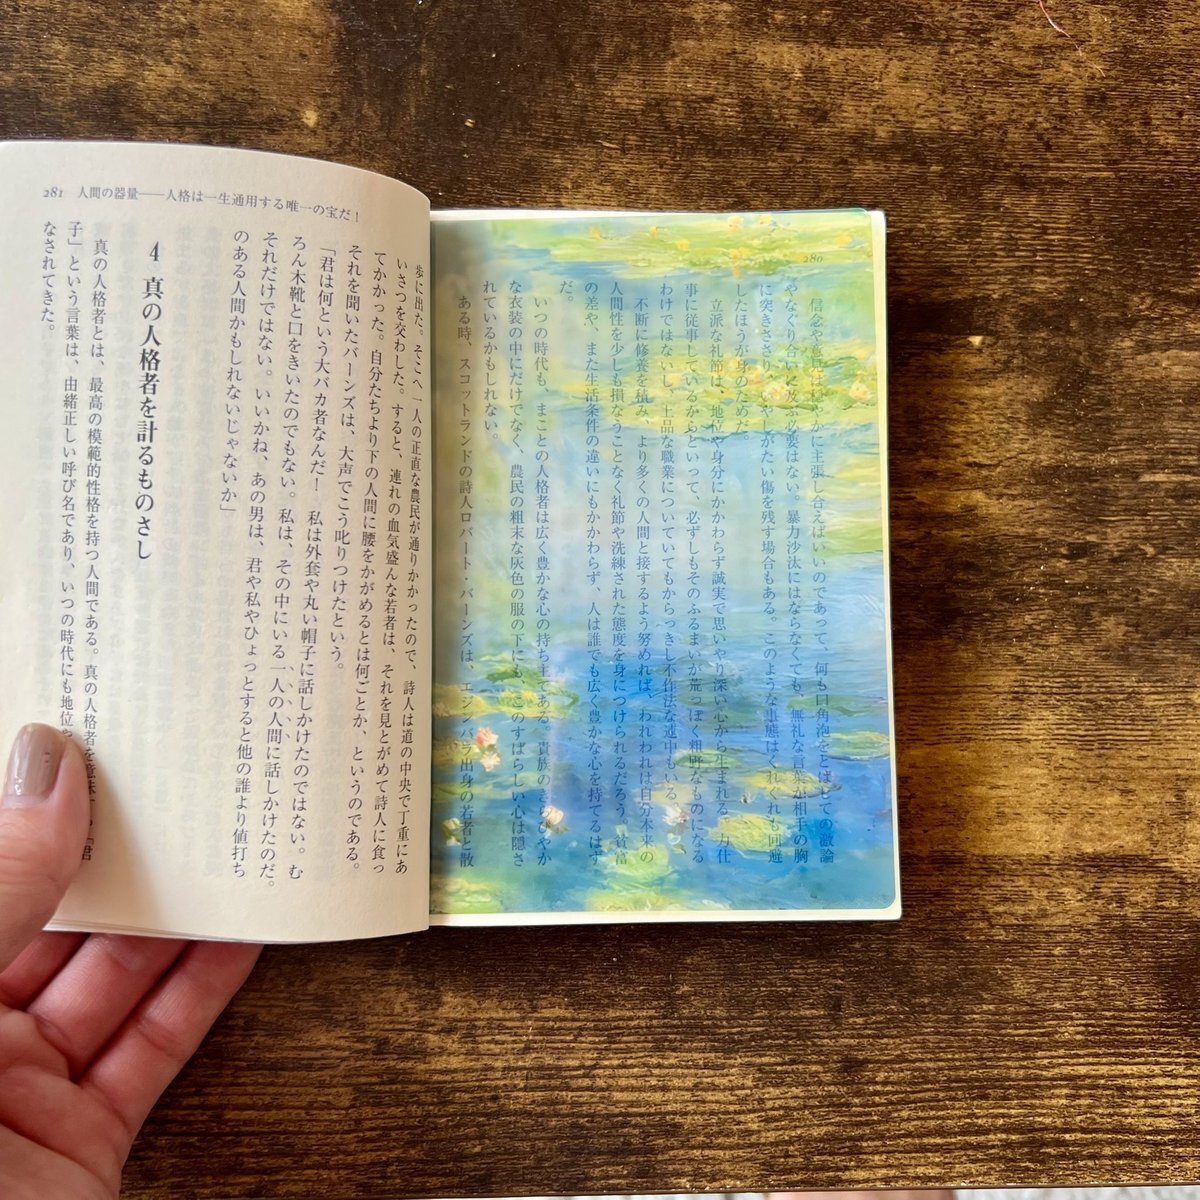 280
信念や意見はおだやかに主張し合えばいいのであって、何も口角泡をとばしての激論
やなぐり合いに及ぶ必要はない。暴力沙汰にはならなくても、無礼な言葉が相手の胸
に突きささり、いやしがたい傷を残す場合もある。このような事態はくれぐれも回避
したほうが身のためだ。
立派な礼節は、地位や身分にかかわらず誠実で思いやり深い心から生まれる。力仕
事に従事しているからといって、必ずしもそのふるまいが荒っぽく粗野なものになる
わけではないし、上品な職業についていてもからっきし不作法な連中もいる。
不断に修養を積み、より多くの人間と接するよう努めれば、われわれは自分本来の
人間性を少しも損なうことなく礼節や洗練された態度を身につけられるだろう。貧富
の差や、また生活条件の違いにもかかわらず、人は誰でも広く豊かな心を持てるはず
だ。
いつの時代も、まことの人格者は広く豊かな心の持ち主である。貴族のきらびやか
な衣装の中にだけでなく、農民の粗末な灰色の服の下にも、このすばらしい心は隠さ
れているかもしれない。
ある時、スコットランドの詩人ロバート・バーンズは、エジンバラ出身の若者と散
281 人間の器量──人格は一生通用する唯一の宝だ！
歩に出た。そこへ一人の正直な農民が通りかかったので、詩人は道の中央で丁重にあ
いさつを交わした。すると、連れの血気盛んな若者は、それを見とがめて詩人に食っ
てかかった。自分たちより下の人間に腰をかがめるとは何ごとか、というのである。
それを聞いたバーンズは、大声でこう叱りつけたという。
「君は何という大バカ者なんだ！ 私は外套や丸い帽子に話しかけたのではない。む
ろん木靴と口をきいたのでもない。私は、その中にいる一人の人間に話しかけたのだ。
それだけではない。いいかね、あの男は、君や私やひょっとすると他の誰より値打ち
のある人間かもしれないじゃないか」
4 真の人格者を計るものさし
真の人格者とは、最高の模範的性格を持つ人間である。真の人格者を意味する「君
子」という言葉は、由緒正しい呼び名であり、いつの時代にも地位や
なされてきた。